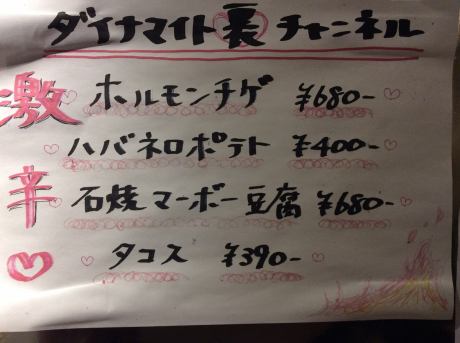 ダイナマイト裏チャンネル
激辛
ホルモンチゲ ¥680-
ハバネロポテト ¥400-
石焼マーボー豆腐 ¥680-
タコス ¥390-